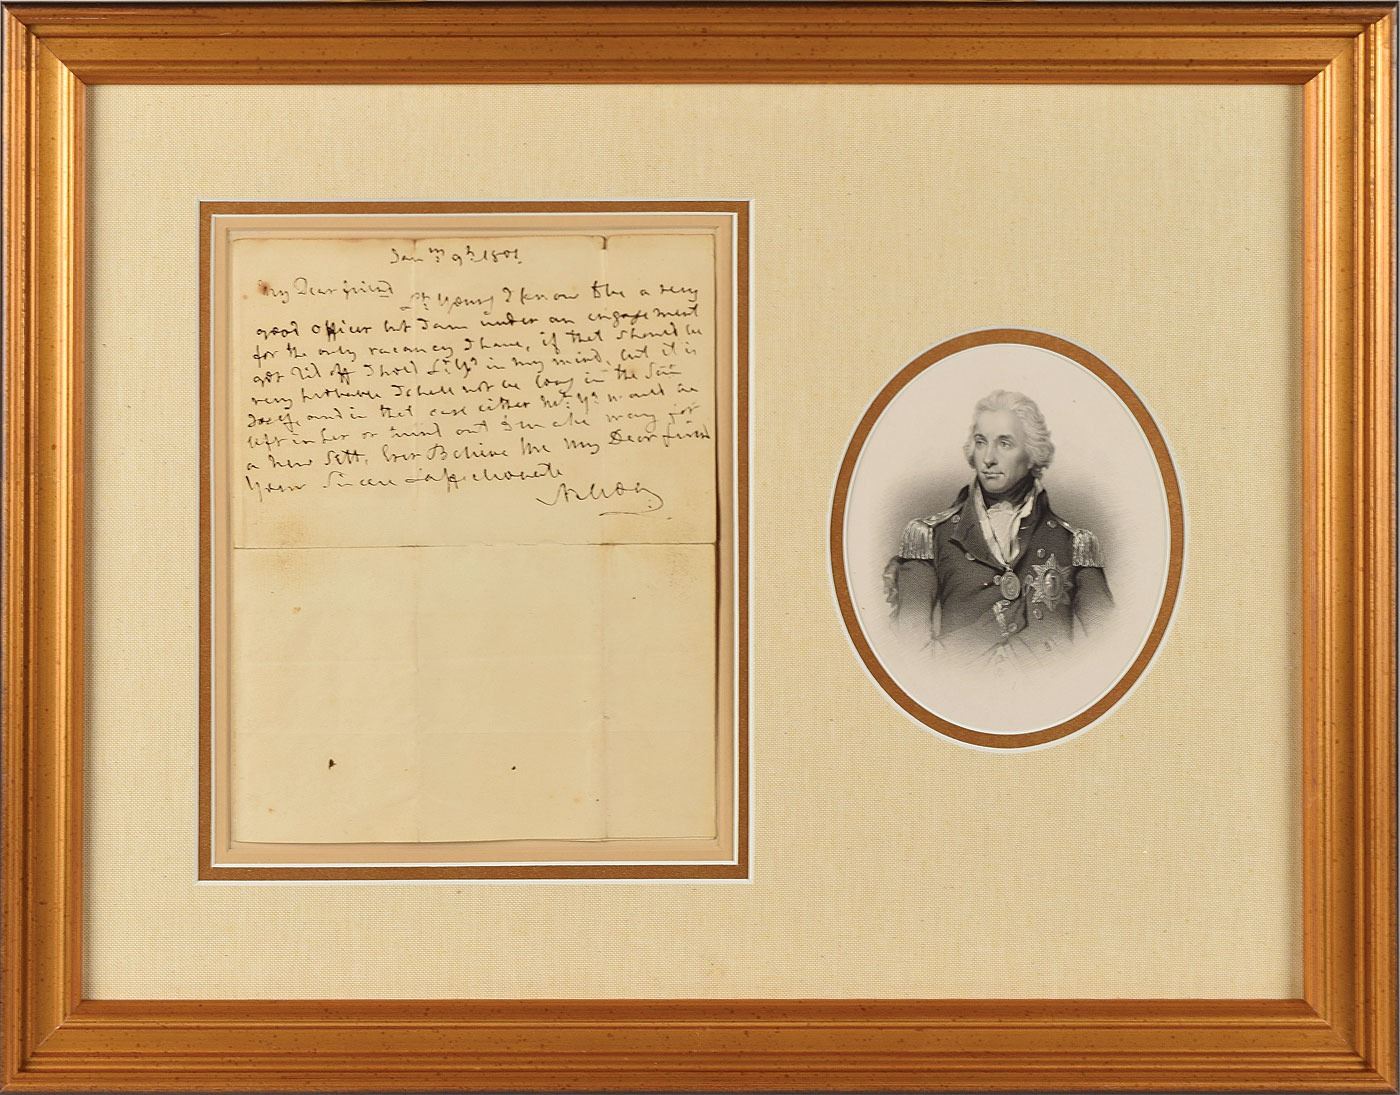 Jan.ry 9th 1801
My Dear friend
Lt. Young I know to be a very
good officer but I am under an engagement
for the only vacancy I have, if that should be
got rid off I hold Lt. Y.s in my mind, but it is
very probable I shall not be long in the San
Josef, and in that case either Mr. Y.s would be
left in her or turned out to make way for
a new Sett, Ever Believe Me My Dear friend
Your Sincere & affectionate
Nelson